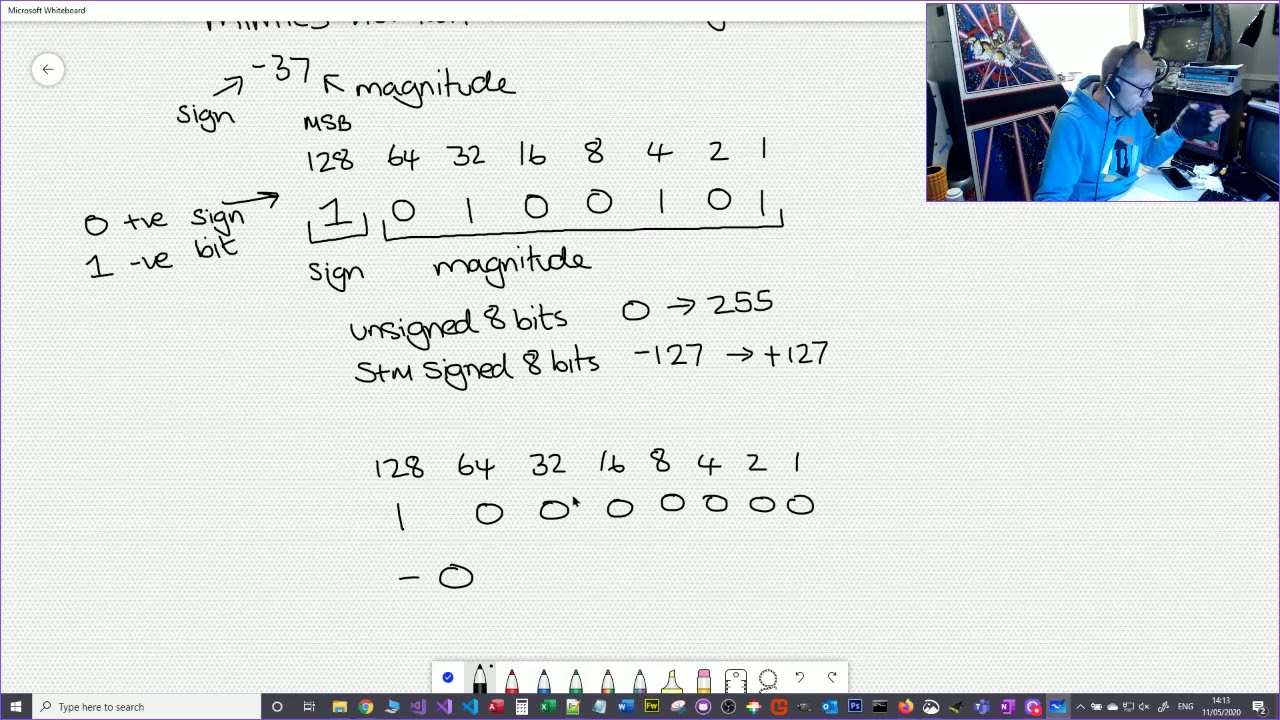 Microsoft Whiteboard
-37
magnitude
sign
MSB
128 64 32 16 8 4 2 1
1 0 1 0 0 1 0 1
0 +ve sign
1 -ve bit
sign magnitude
unsigned 8 bits 0 → 255
S+M signed 8 bits -127 → +127
128 64 32 16 8 4 2 1
1 0 0 0 0 0 0 0
- 0
Type here to search
ENG
14:13
11/05/2020